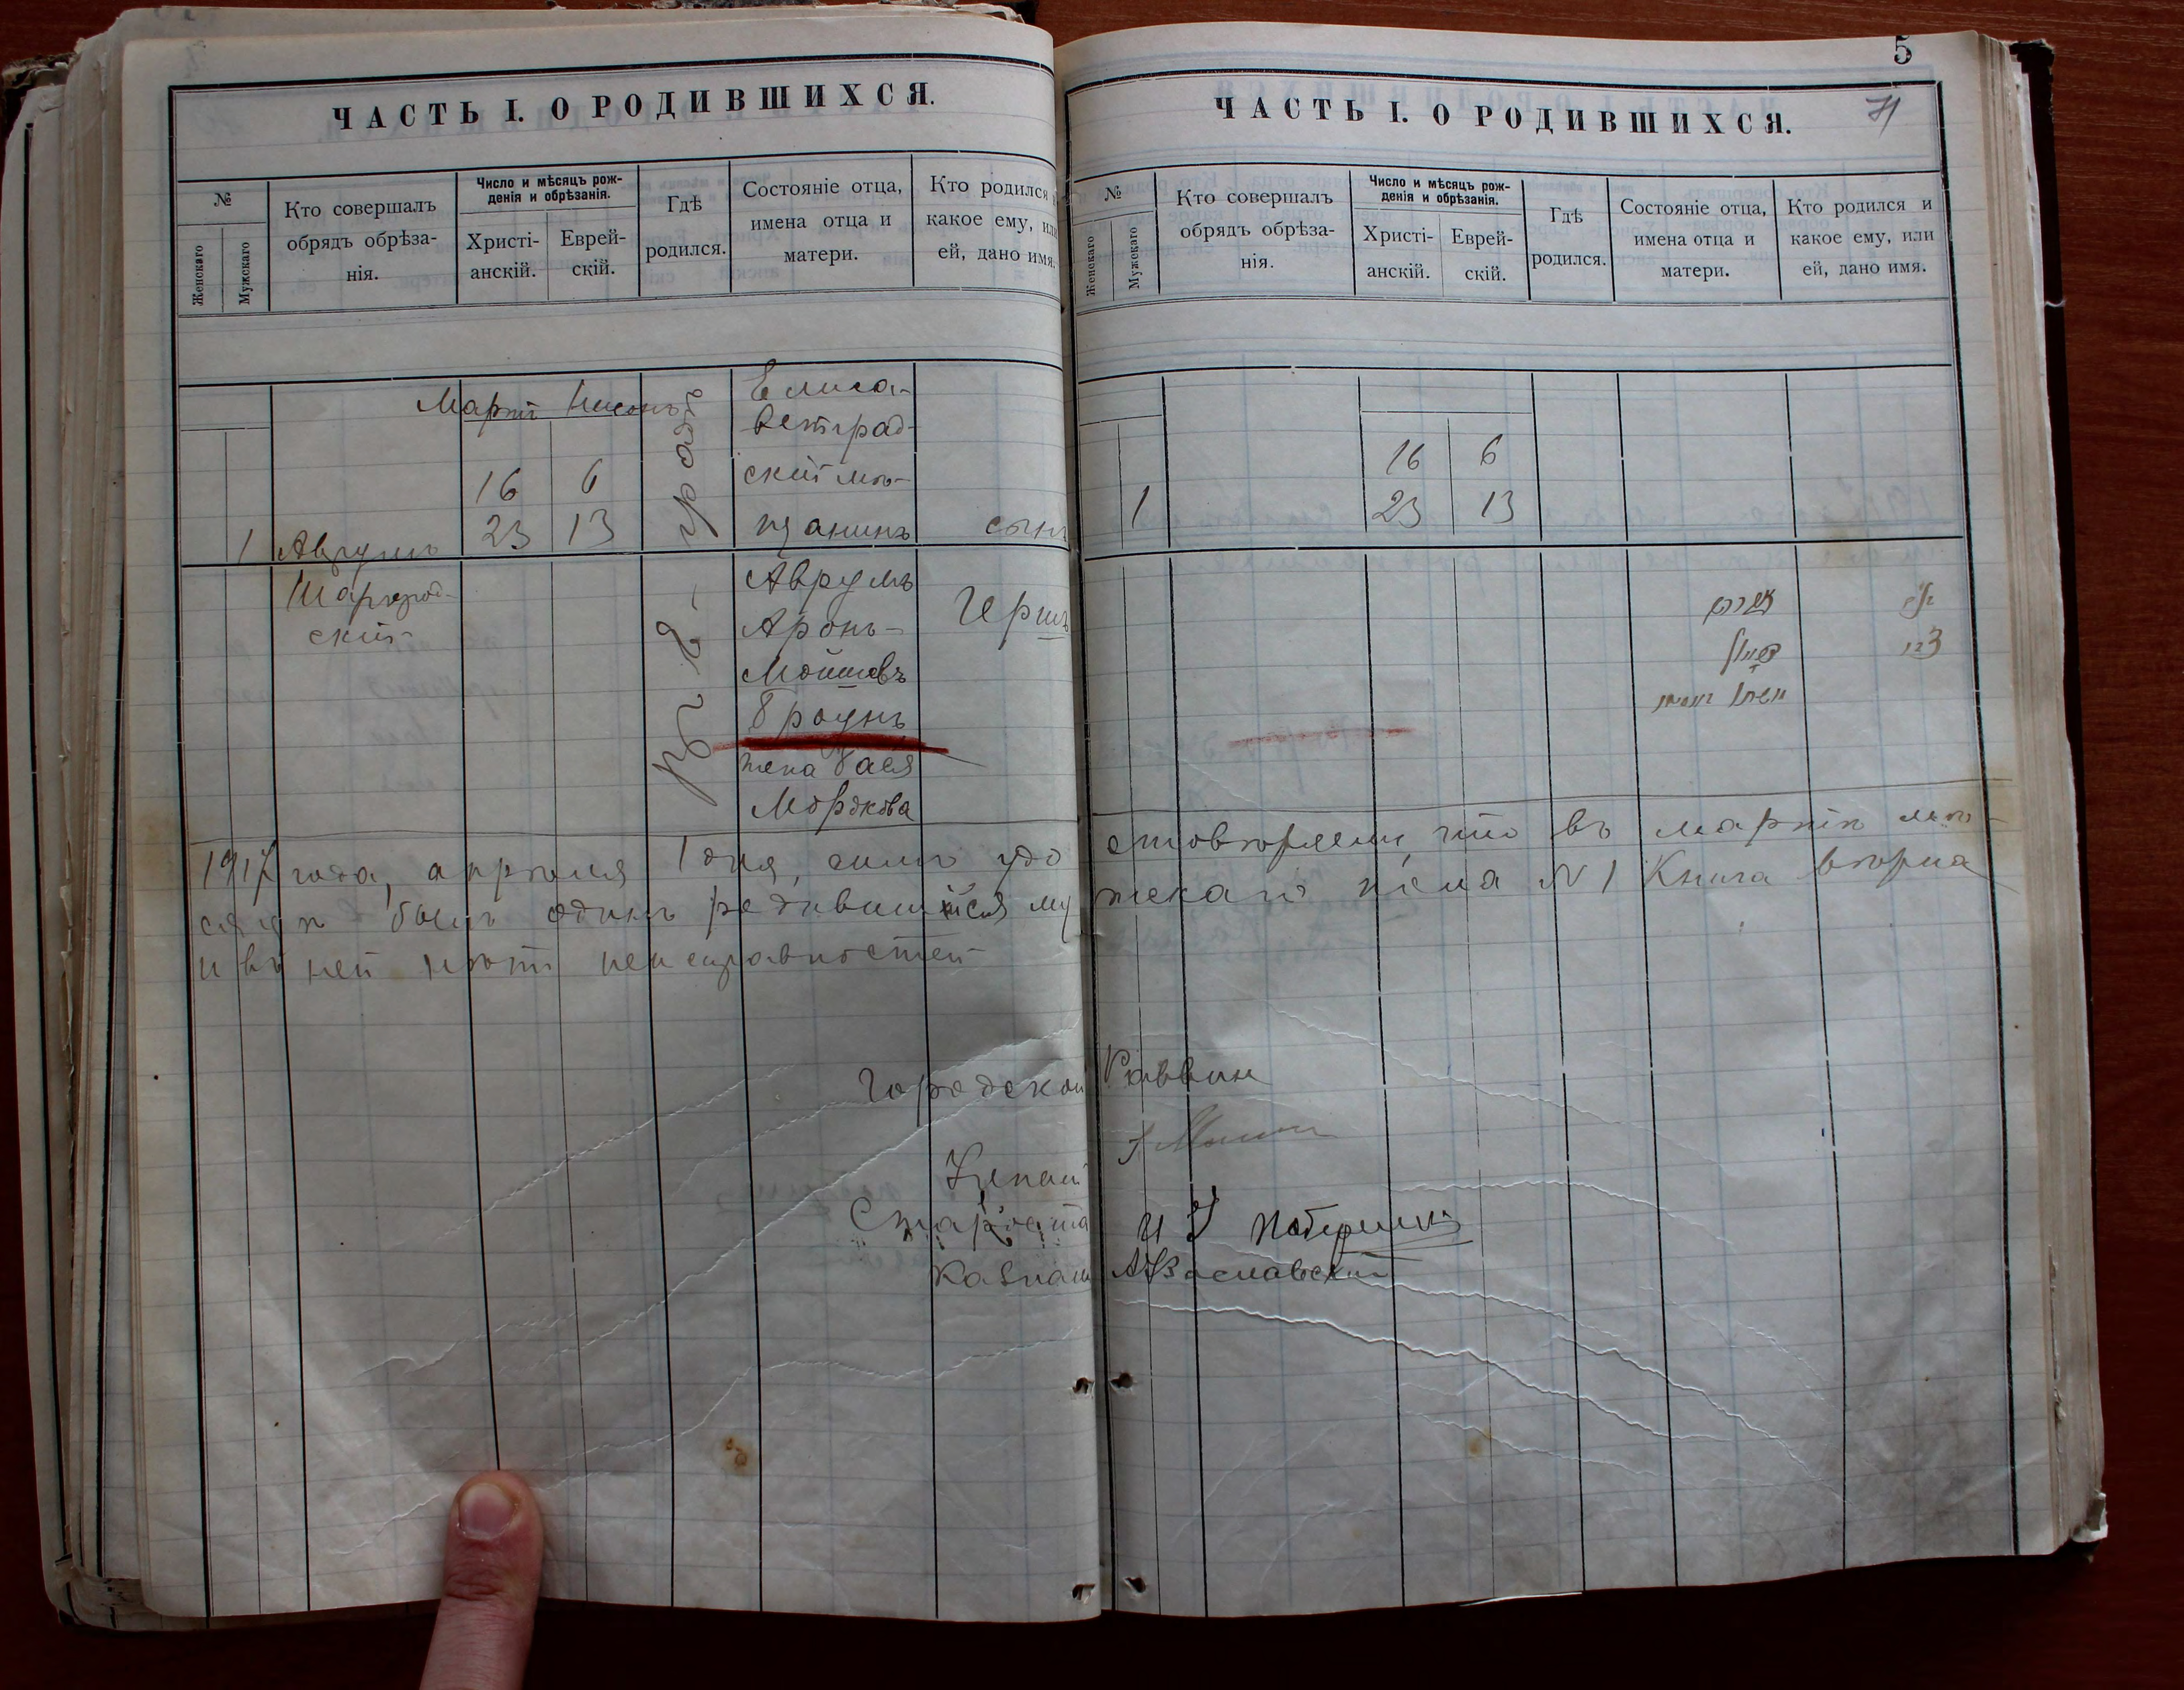 ЧАСТЬ I. О РОДИВШИХСЯ.
№
Женскаго
Мужскаго
Кто совершалъ
обрядъ обрѣза-
нія.
Число и мѣсяцъ рож-
денія и обрѣзанія.
Христі-
анскій.
Еврей-
скій.
Гдѣ
родился.
Состояніе отца,
имена отца и
матери.
Кто родился и
какое ему, или
ей, дано имя.
Мартъ Нисонъ
1
Аврумъ
Шаргород-
скій
16 6
23 13
Елиса-
ветград-
скій мѣ-
щанинъ
Аврумъ
Аронъ-
Мошковъ
Браунъ
жена Бася
Мордкова
сынъ
Герш
5
ЧАСТЬ I. О РОДИВШИХСЯ.
№
Женскаго
Мужскаго
Кто совершалъ
обрядъ обрѣза-
нія.
Число и мѣсяцъ рож-
денія и обрѣзанія.
Христі-
анскій.
Еврей-
скій.
Гдѣ
родился.
Состояніе отца,
имена отца и
матери.
Кто родился и
какое ему, или
ей, дано имя.
1
16 6
23 13
1917 года, апрѣля 1 дня, симъ удостовѣряемъ, что въ мартѣ мѣ-
сяцѣ былъ одинъ родившійся мужскаго пола N 1 Книга вѣрна
и въ ней нѣтъ неисправностей
Городской Раввин
Староста
Казнач Заславский